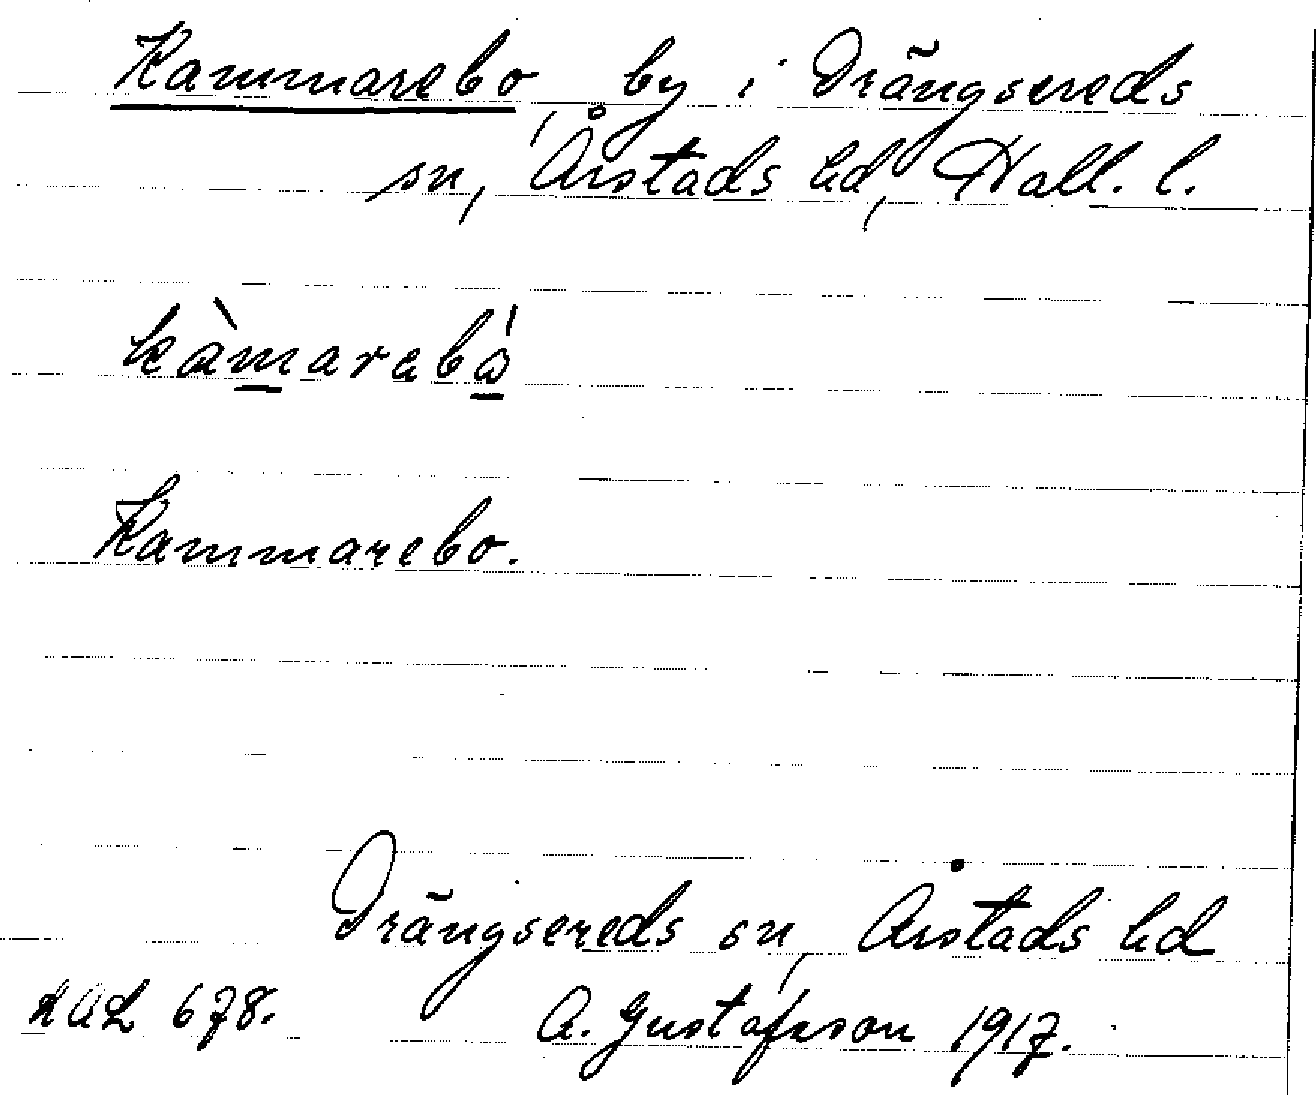 Kammarebo, by i Drängsereds
sn, Årstads hd, Hall. l.
kàmarabó
Kammarebo.
Drängsereds sn, Årstads hd
A. Gustafsson 1917.